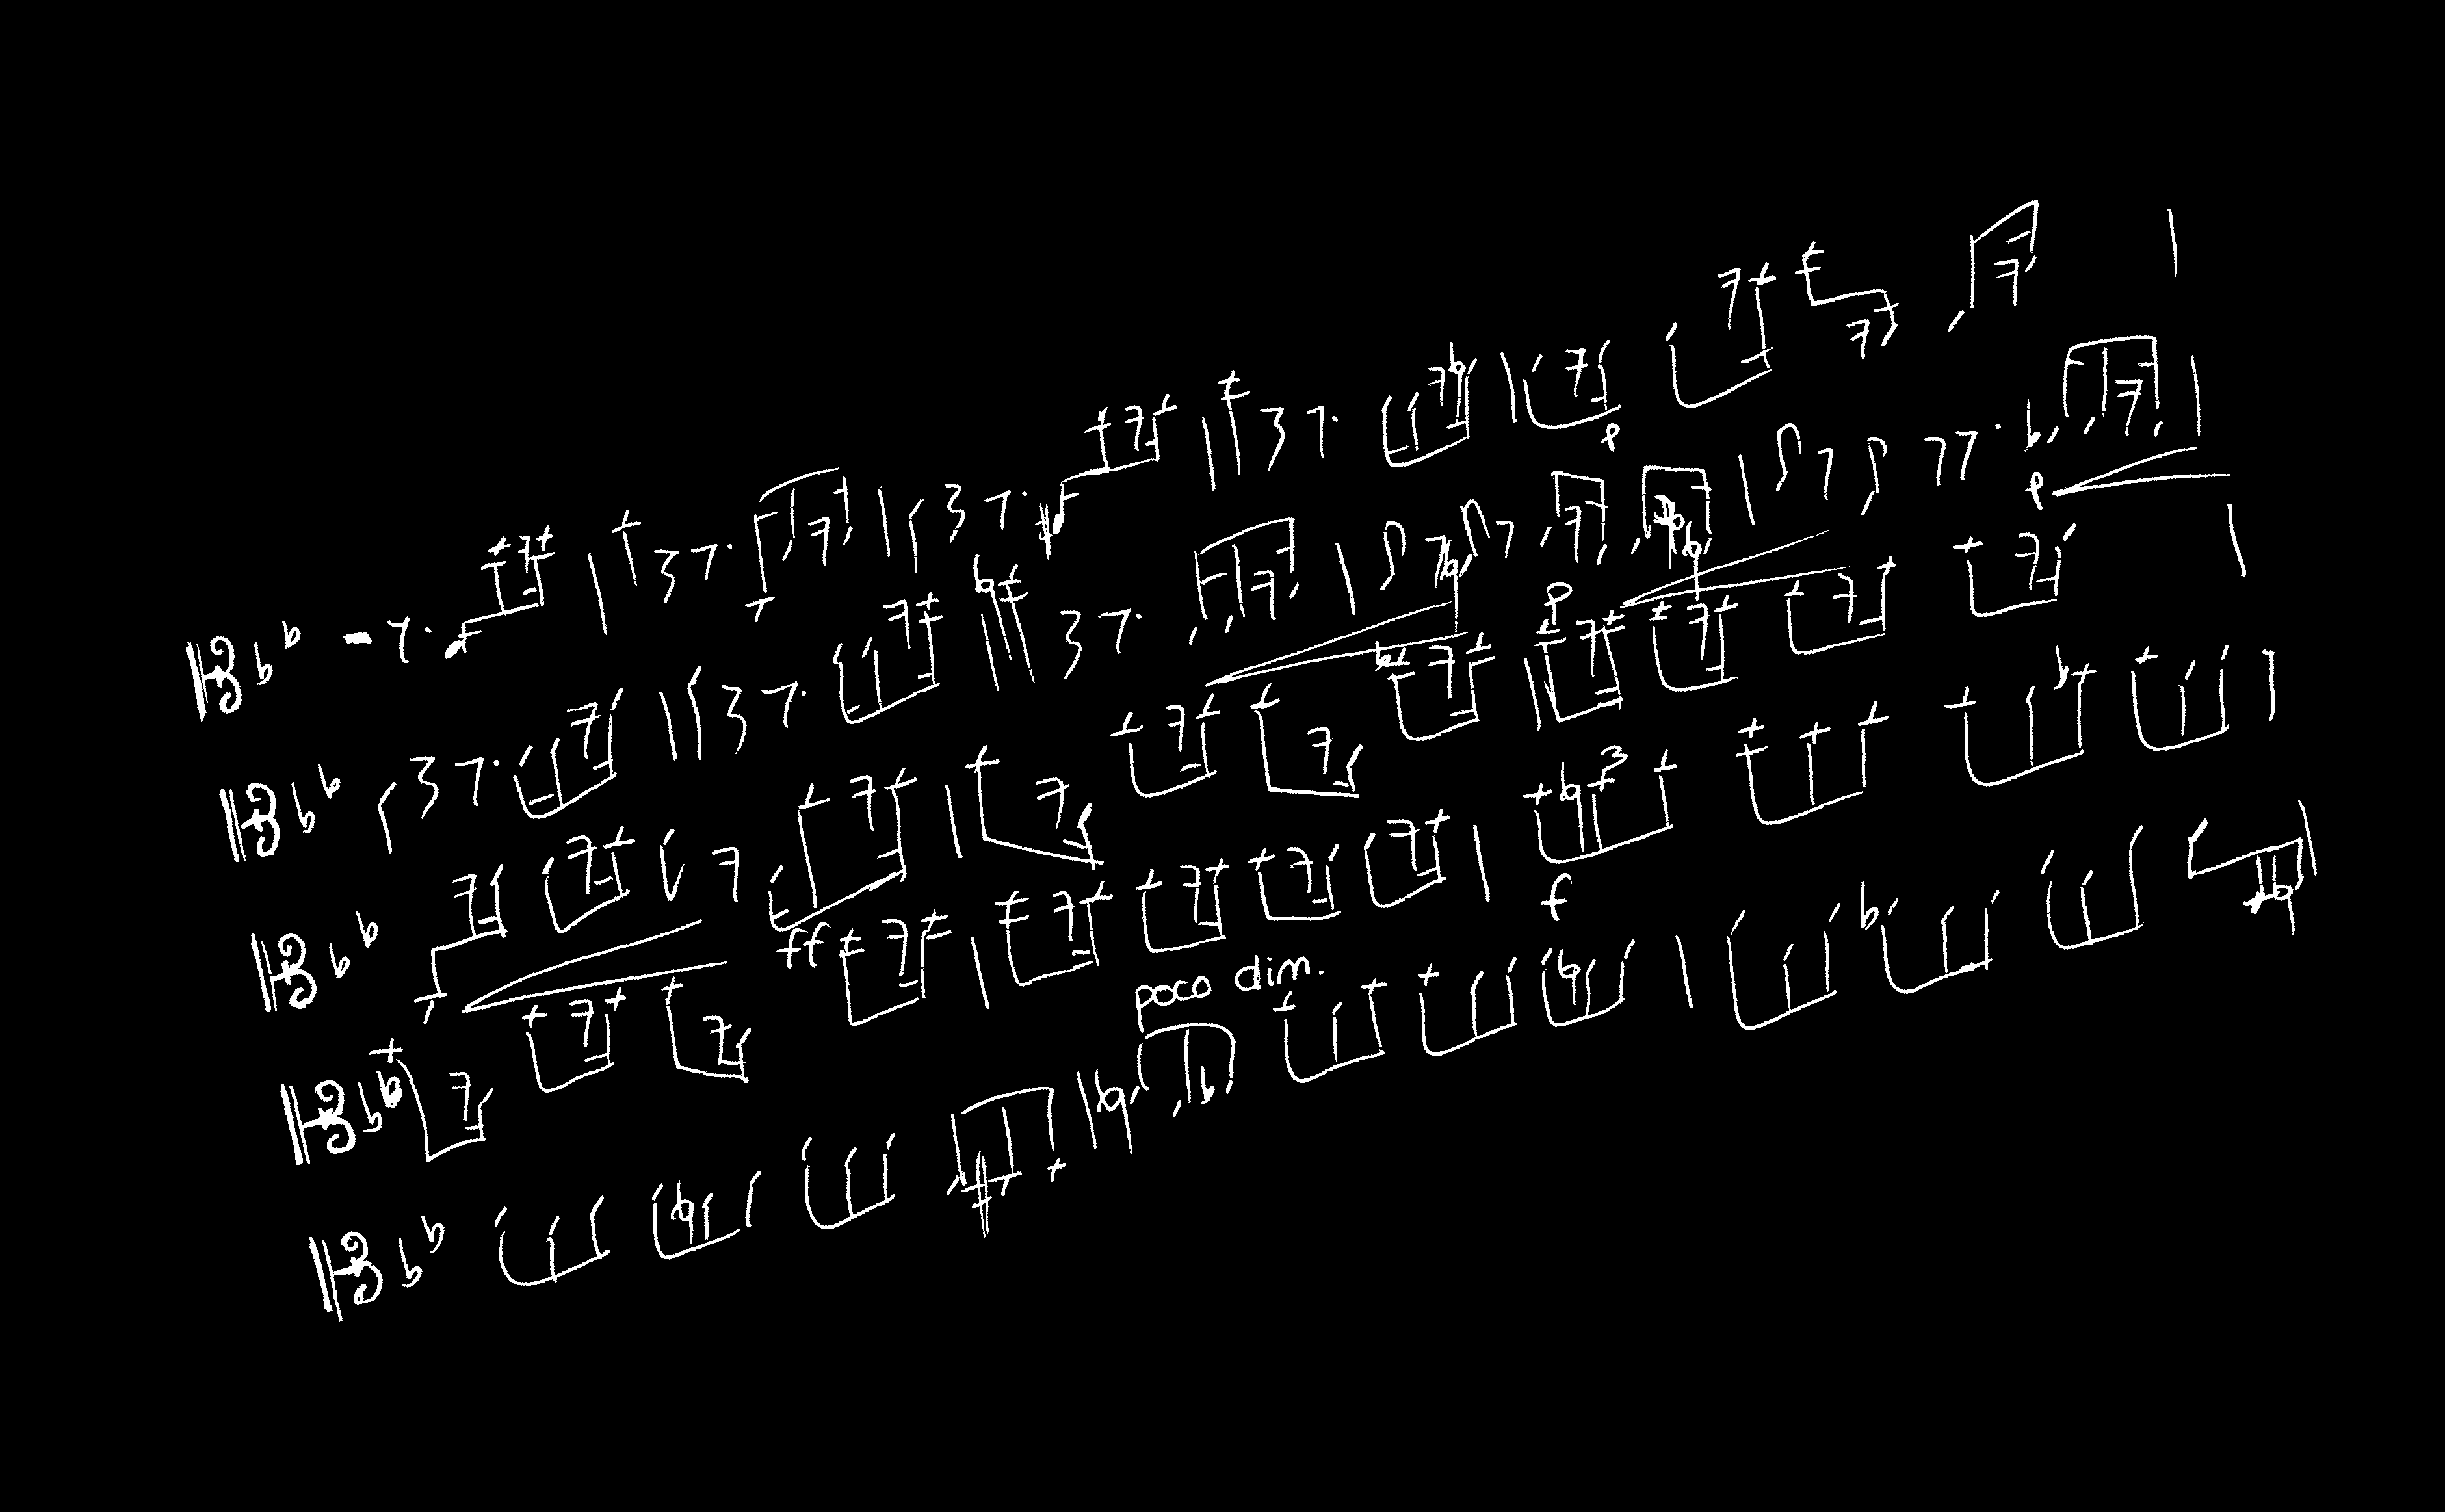 p
p
p
f
ff
poco dim.